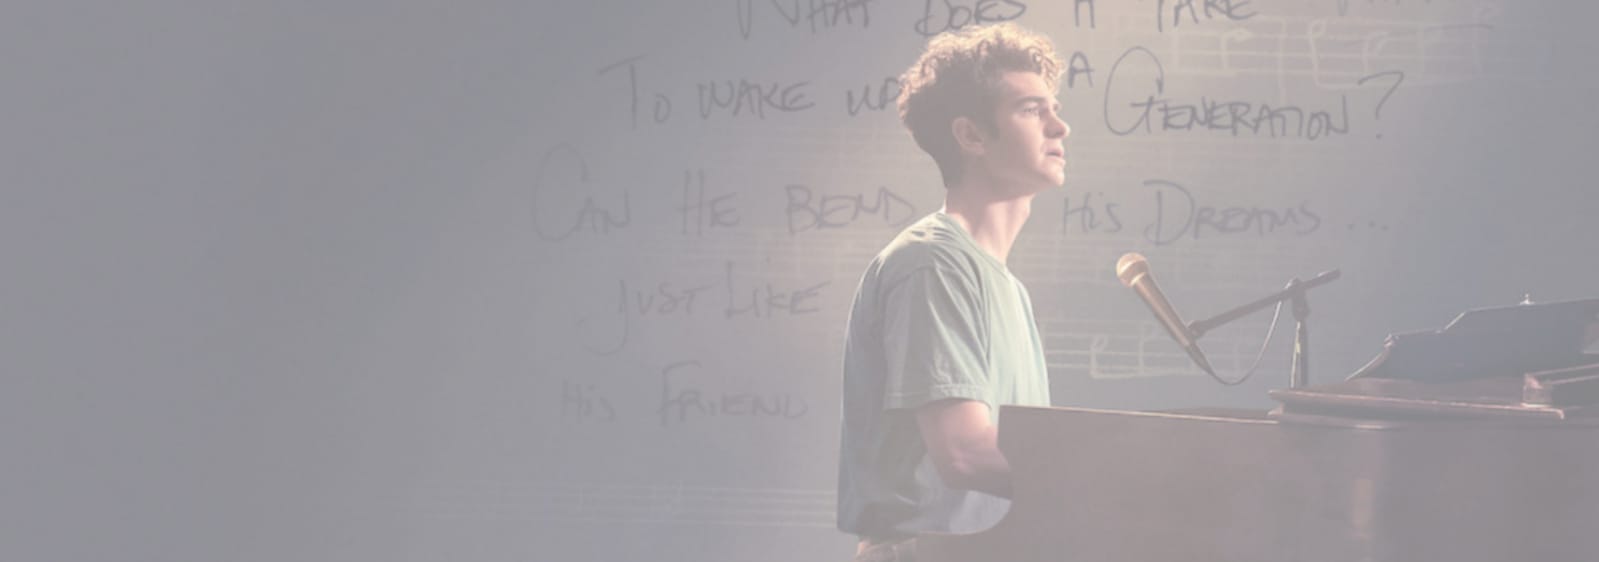 WHAT DOES IT TAKE
TO WAKE UP A GENERATION?
CAN HE BEND HIS DREAMS ...
JUST LIKE
HIS FRIEND